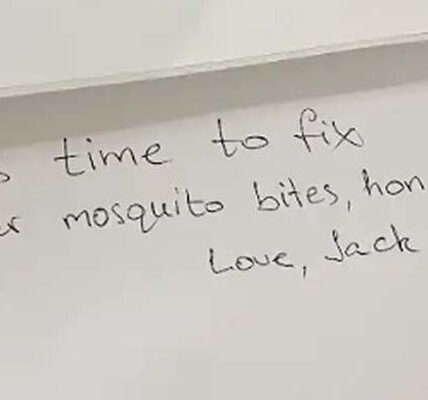 time to fix
mosquito bites, hon
Love, Jack